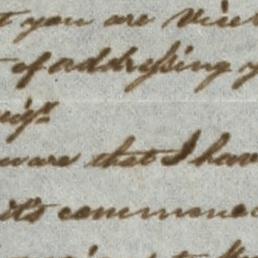 t you are vice
of addressing y
ware that I hav
it's commenc